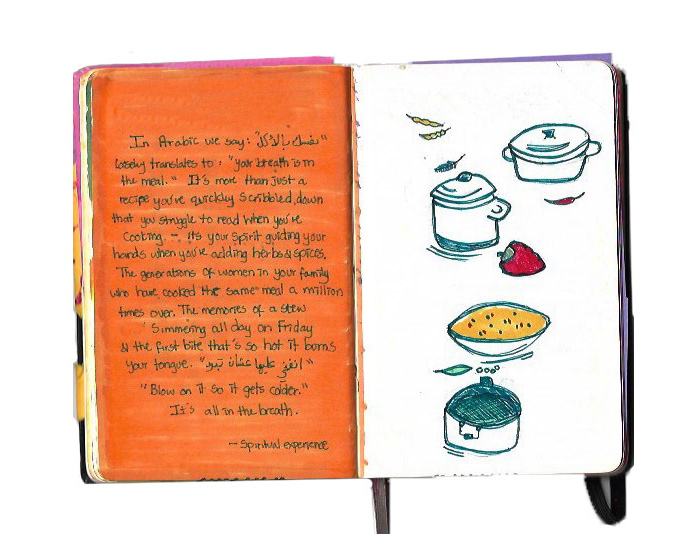 In Arabic we say: "نفسك بالأكل"
loosely translates to: "your breath is in
the meal." It's more than just a
recipe you've quickly scribbled down
that you struggle to read when you're
cooking. – its your spirit guiding your
hands when you're adding herbs & spices.
The generations of women in your family
who have cooked the same meal a million
times over. The memories of a stew
simmering all day on Friday
& the first bite that's so hot it burns
your tongue. "انفخي عليها عشان تبرد"
"Blow on it so it gets colder."
It's all in the breath.
– Spiritual experience